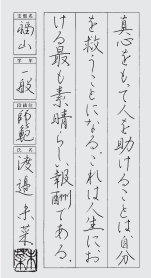 真心をもって人を助けることは、自分
を救うことになる。これは人生にお
ける最も素晴らしい報酬である。
支部名
福山
学年
一般
段級位
師範
氏名
渡邉